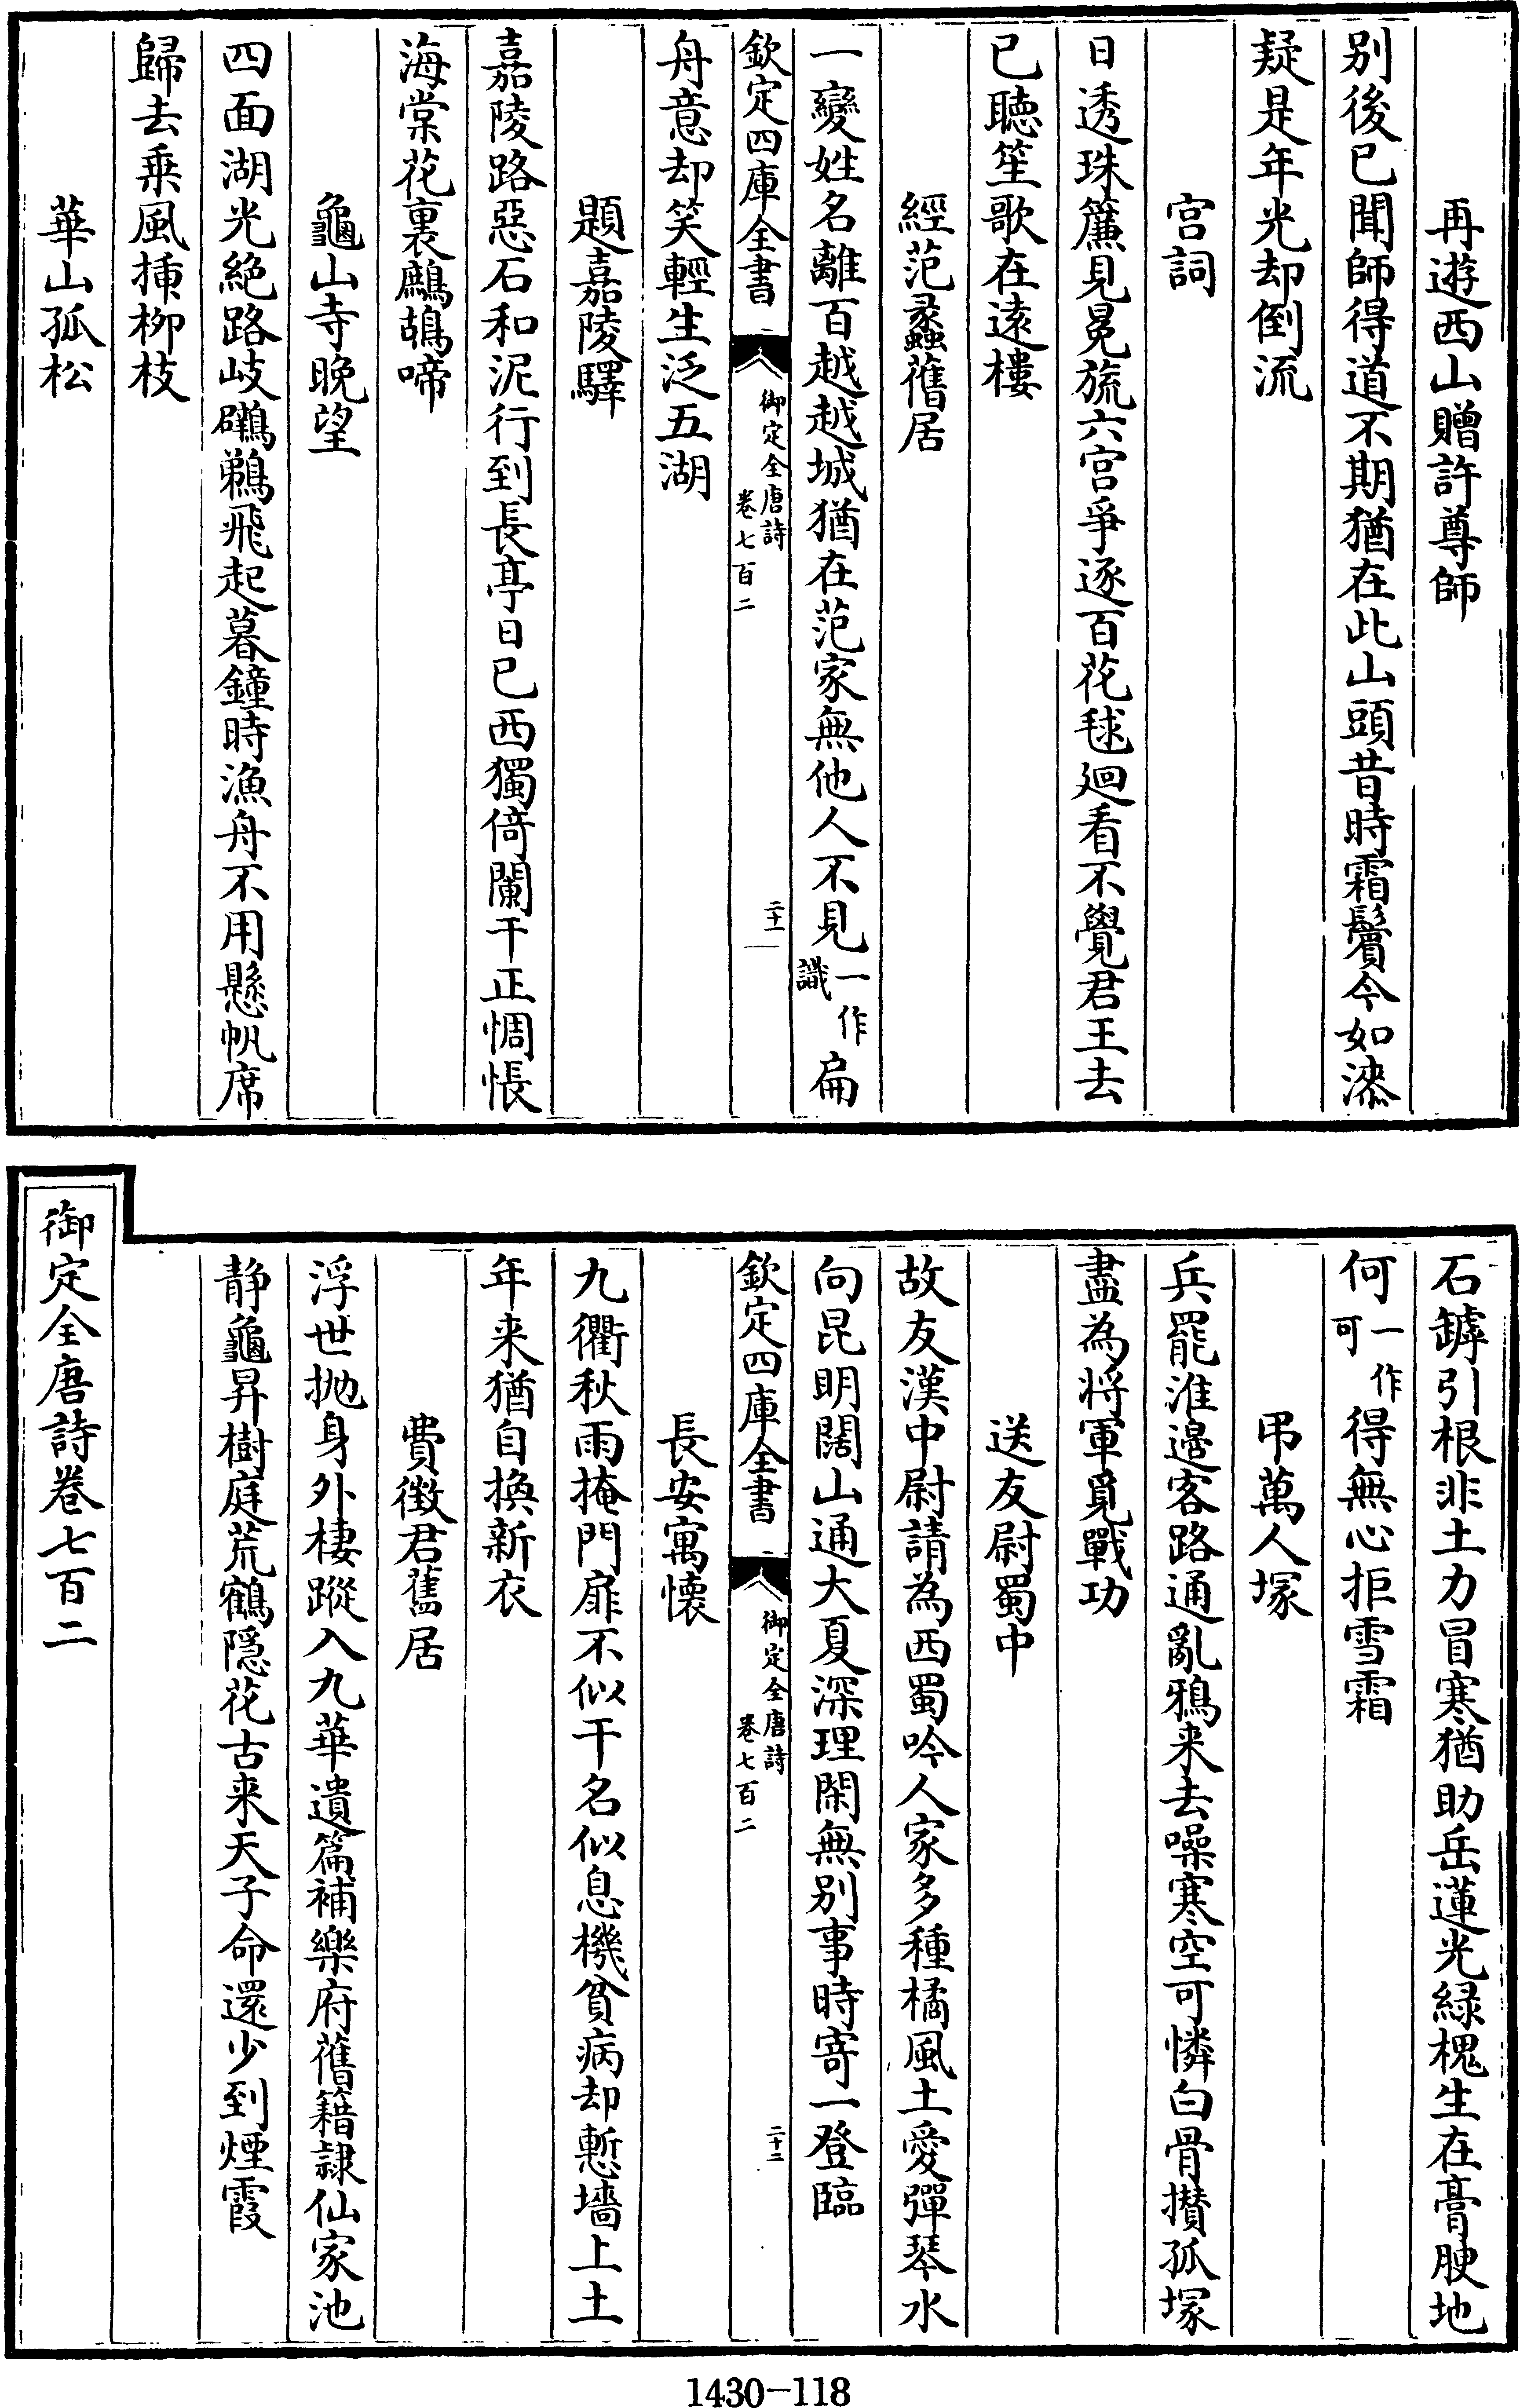 再遊西山贈許尊師
别後已聞師得道不期猶在此山頭昔時霜鬢今如漆
疑是年光却倒流
宫詞
日透珠簾見冕旒六宫爭逐百花毬廻看不覺君王去
已聴笙歌在逺樓
經范蠡舊居
一變姓名離百越越城猶在范家無他人不見一作識扁
欽定四庫全書 御定全唐詩卷七百二 二十一
舟意却笑輕生泛五湖
題嘉陵驛
嘉陵路惡石和泥行到長亭日已西獨倚闌干正惆悵
海棠花裏鷓鴣啼
龜山寺晚望
四面湖光絶路岐鸊鵜飛起暮鐘時漁舟不用懸帆席
歸去乗風揷栁枝
華山孤松
石罅引根非土力冒寒猶助岳蓮光緑槐生在膏腴地
何一作可得無心拒雪霜
弔萬人塚
兵罷淮邉客路通亂鴉来去噪寒空可憐白骨攅孤塚
盡為将軍覓戰功
送友尉蜀中
故友漢中尉請為西蜀吟人家多種橘風土愛彈琴水
向昆明闊山通大夏深理閑無别事時寄一登臨
欽定四庫全書 御定全唐詩卷七百二 二十二
長安寓懐
九衢秋雨掩門扉不似干名似息機貧病却慙墻上土
年来猶自換新衣
費徴君舊居
浮世抛身外棲蹤入九華遺篇補樂府舊籍隷仙家池
静龜昇樹庭荒鶴隠花古来天子命還少到煙霞
御定全唐詩卷七百二
1430-118